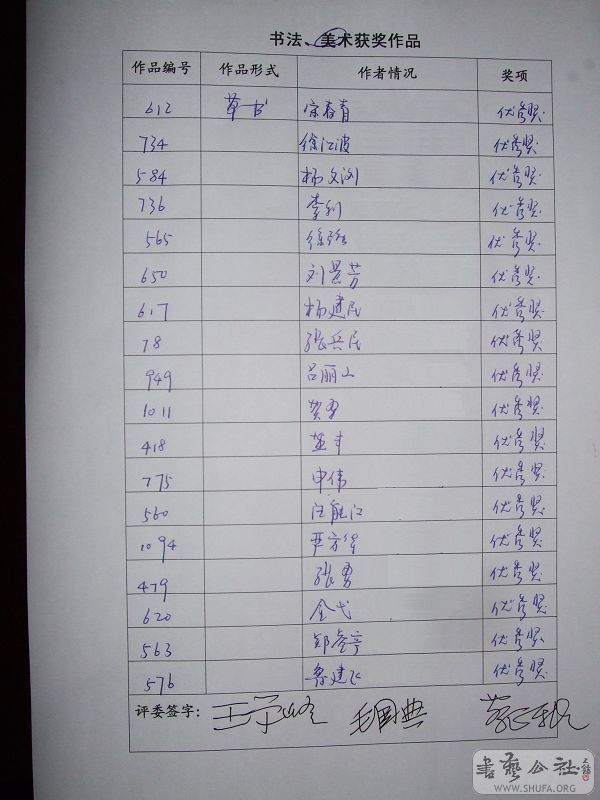 书法、美术获奖作品
作品编号 作品形式 作者情况 奖项
612 草书 宗春青 优秀奖
734 徐江波 优秀奖
584 杨文浏 优秀奖
736 李利 优秀奖
565 徐强 优秀奖
650 刘景芳 优秀奖
617 杨建民 优秀奖
78 张兵民 优秀奖
949 吕丽山 优秀奖
1011 优秀奖
418 优秀奖
775 申伟 优秀奖
560 汪能江 优秀奖
1094 优秀奖
479 张勇 优秀奖
620 金戈 优秀奖
563 优秀奖
576 鲁建飞 优秀奖
评委签字:
書藝公社
WWW.SHUFA.ORG